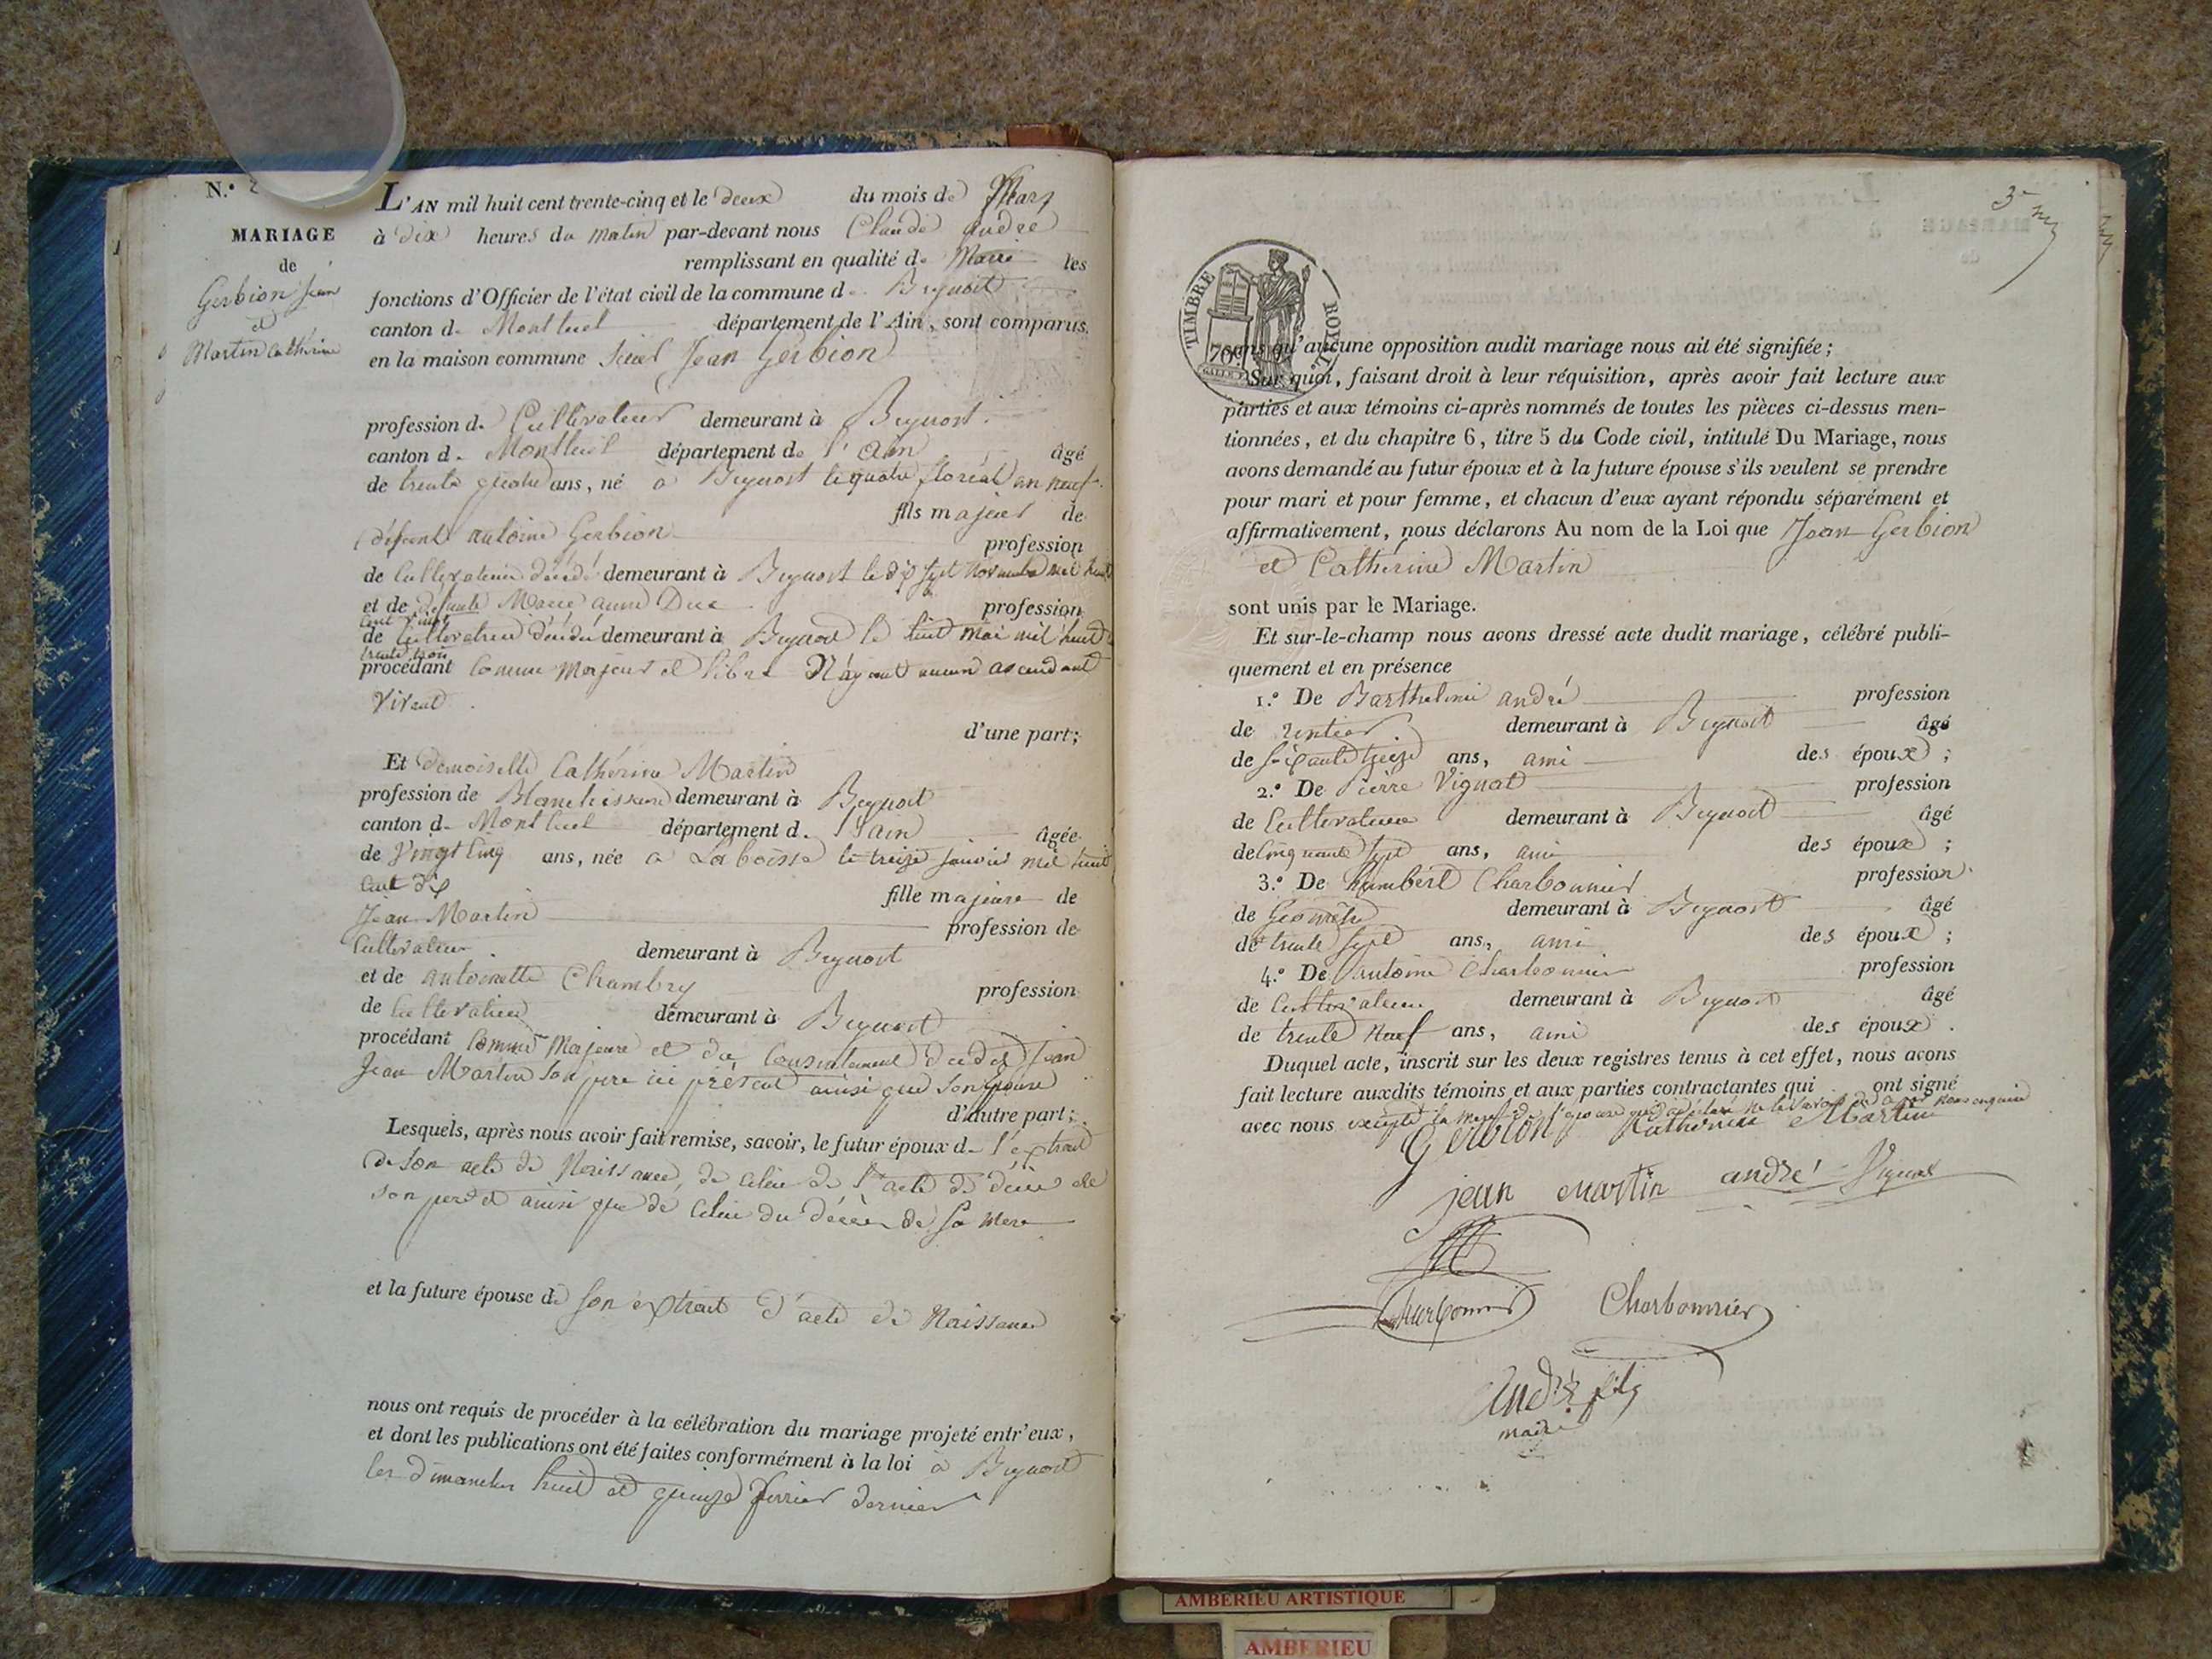 N.º 2
MARIAGE
de
Gerbion Jean
et
Martin Catherine
L'AN mil huit cent trente-cinq et le deux du mois de Mars
à dix heures du matin par-devant nous Claude André
remplissant en qualité de Maire les
fonctions d'Officier de l'état civil de la commune de Beynost
canton de Montluel département de l'Ain, sont comparus
en la maison commune sieur Jean Gerbion
profession de Cultivateur demeurant à Beynost
canton de Montluel département de l'Ain âgé
de trente quatre ans, né à Beynost le quatre floréal an neuf
fils majeur de
défunt antoine Gerbion
profession
de Cultivateur décédé demeurant à Beynost le dix sept novembre mil huit
et de défunte Marie anne Duc profession
cent vingt
de Cultivatrice décédée demeurant à Beynost le huit mai mil huit
trente trois
procédant comme Majeur et libre N'ayant aucun ascendant
vivant
d'une part;
Et demoiselle Catherine Martin
profession de Blanchisseuse demeurant à Beynost
canton de Montluel département de l'ain âgée
de Vingt Cinq ans, née à La boisse le treize janvier mil huit
cent dix
fille majeure de
Jean Martin
profession de
Cultivateur demeurant à Beynost
et de antoinette Chambry
profession
de Cultivatrice demeurant à Beynost
procédant comme Majeure et du Consentement dudit Jean
Jean Martin son pere ici présent ainsi que son épouse
d'autre part;
Lesquels, après nous avoir fait remise, savoir, le futur époux de l'extrait
de son acte de Naissance, de celui de l'acte de décès de
son pere et ainsi que de celui du décès de sa mere
et la future épouse de son extrait d'acte de Naissance
nous ont requis de procéder à la célébration du mariage projeté entr'eux,
et dont les publications ont été faites conformément à la loi à Beynost
les dimanches huit et quinze février dernier
3e
TIMBRE ROYAL
70c
sans qu'aucune opposition audit mariage nous ait été signifiée;
Sur quoi, faisant droit à leur réquisition, après avoir fait lecture aux
parties et aux témoins ci-après nommés de toutes les pièces ci-dessus men-
tionnées, et du chapitre 6, titre 5 du Code civil, intitulé Du Mariage, nous
avons demandé au futur époux et à la future épouse s'ils veulent se prendre
pour mari et pour femme, et chacun d'eux ayant répondu séparément et
affirmativement, nous déclarons Au nom de la Loi que Jean Gerbion
et Catherine Martin
sont unis par le Mariage.
Et sur-le-champ nous avons dressé acte dudit mariage, célébré publi-
quement et en présence
1.º De Barthelmi andré profession
de rentier demeurant à Beynost âgé
de soixante treize ans, ami des époux;
2.º De Pierre Vignat profession
de Cultivateur demeurant à Beynost âgé
de Cinquante sept ans, ami des époux;
3.º De humbert Charbonnier profession
de Géomètre demeurant à Beynost âgé
de trente sept ans, ami des époux;
4.º De antoine Charbonnier profession
de Cultivateur demeurant à Beynost âgé
de trente neuf ans, ami des époux.
Duquel acte, inscrit sur les deux registres tenus à cet effet, nous avons
fait lecture auxdits témoins et aux parties contractantes qui ont signé
avec nous excepté la mere de l'épouse qui a déclaré ne le savoir de ce enquise
Gerbion Catherine Martin
jean martin andré Vignat
Charbonnier Charbonnier
André fils
maire
AMBERIEU ARTISTIQUE
AMBERIEU